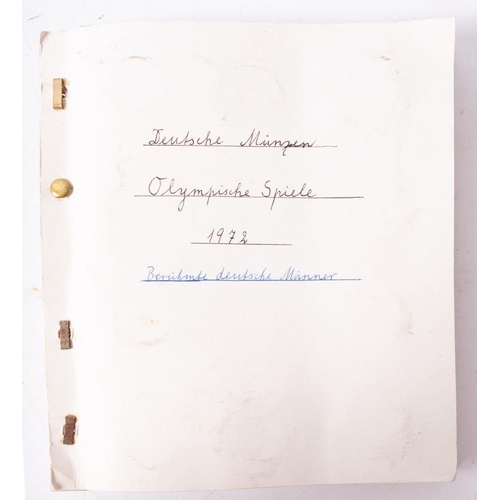 Deutsche Münzen
Olympische Spiele
1972
Berühmte deutsche Männer